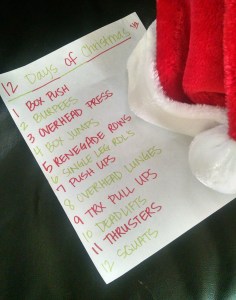 12 Days of Christmas
1 BOX PUSH
2 BURPEES
3 OVERHEAD PRESS
4 BOX JUMPS
5 RENEGADE ROWS
6 SINGLE LEG RDLS
7 PUSH UPS
8 OVERHEAD LUNGES
9 TRX PULL UPS
10 DEADLIFTS
11 THRUSTERS
12 SQUATS